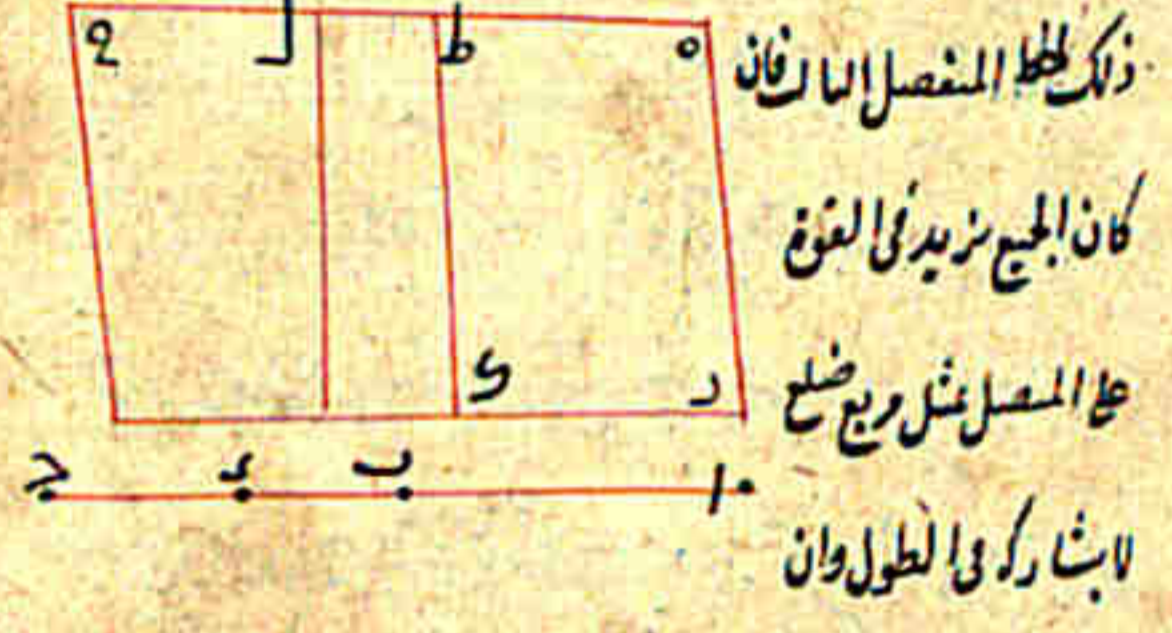 ذلك لخط المنفصل الثالث فان
كان الجميع يزيد في القوة
على المتصل بمثل مربع ضلع
لا يشاركه في الطول وان
ح ل ط ه
ى ر
ج د ب ا